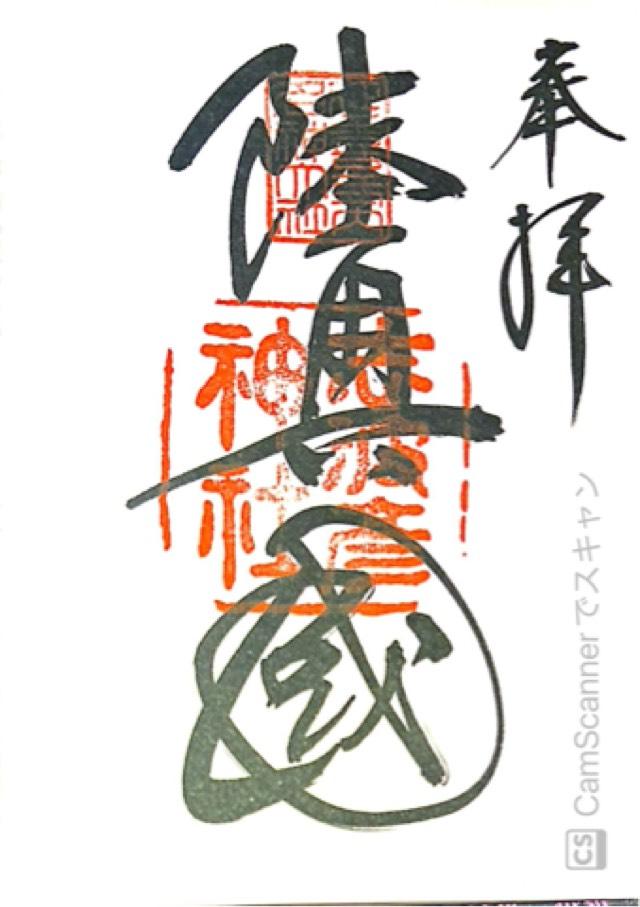 奉拝
陸奥國
志波彦
神社
CS CamScanner でスキャン